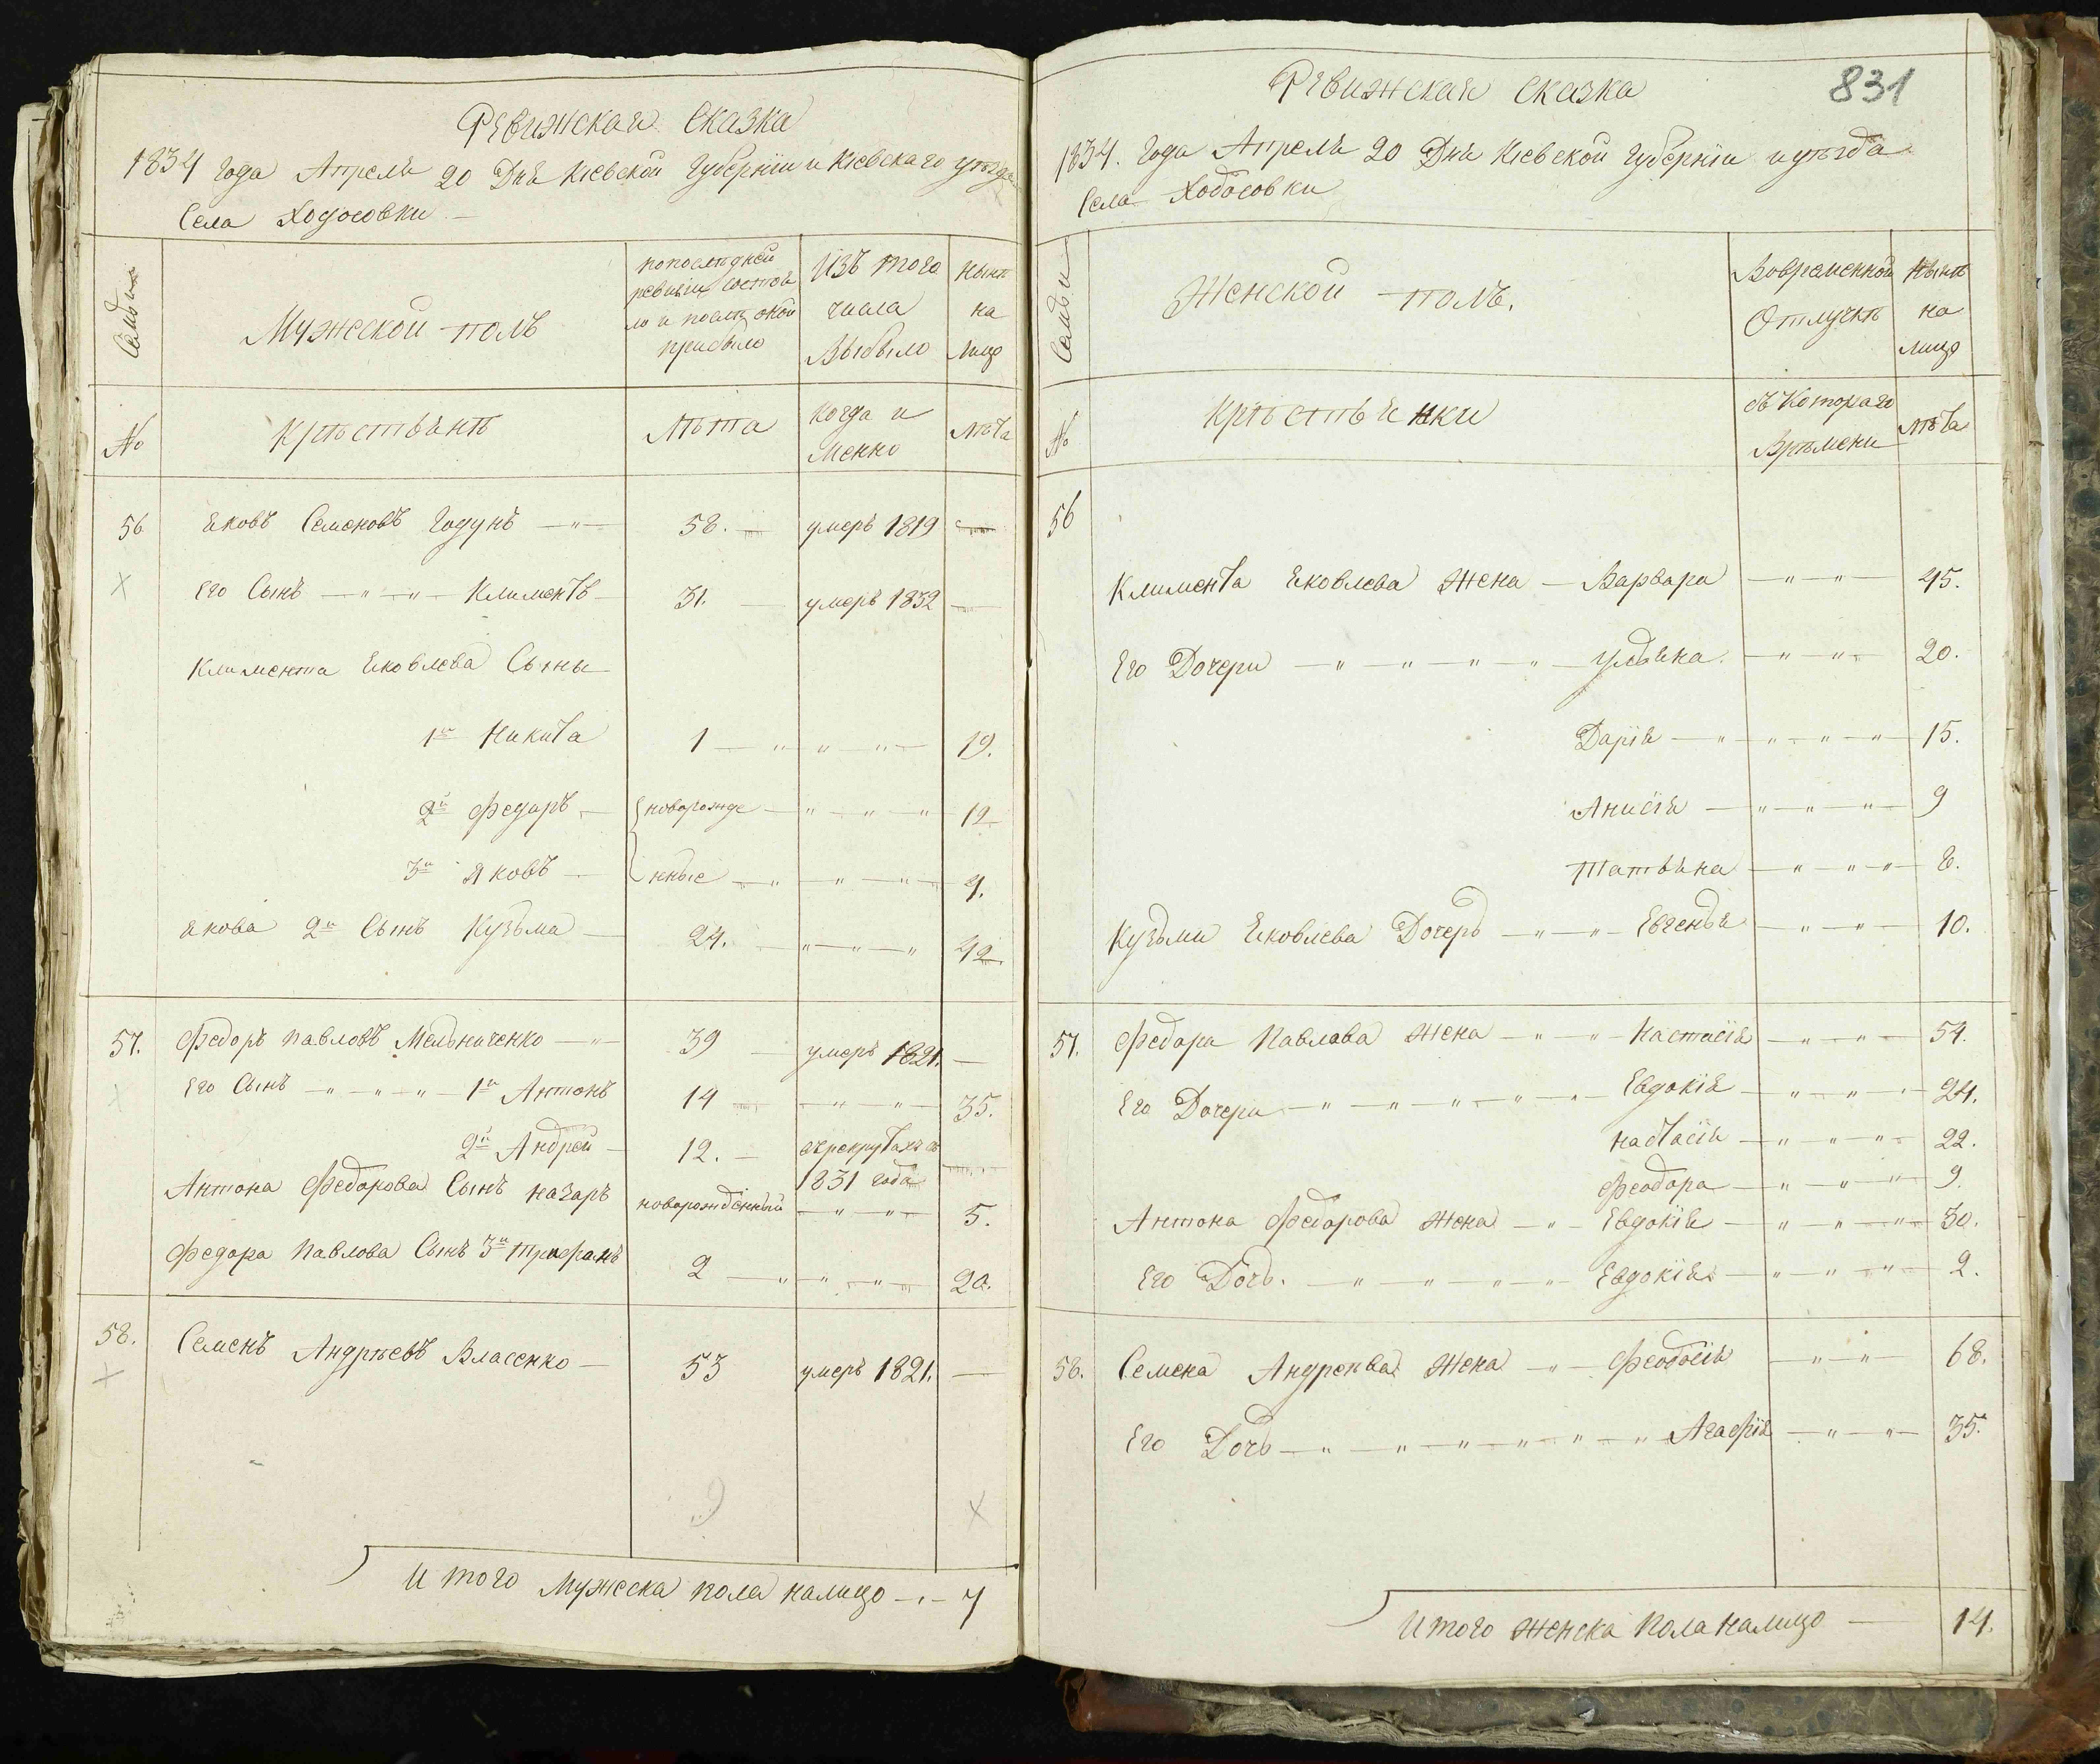 Ревижская Сказка
1834 года Апреля 20 Дня Киевской Губернии и Киевскаго уезда
Села Ходосовки
Семьи
Мужеской полъ
попоследней
ревизіи состоя
ло и после оной
прибыло
Изъ того
числа
Выбыло
Ныне
на
лицо
№
Крестьяне
Лета
когда и
менно
Лета
56 Яковъ Семеновъ Годунъ 58. умеръ 1819
Его Сынъ Климентъ 31. умеръ 1832
Климента Яковлева Сыны
1й Никита 1 19.
2й Федоръ новорожде 12
3й Яковъ нные 4.
Якова 2й Сынъ Кузьма 24. 42.
57. Федоръ Павловъ Мельниченко 39 умеръ 1821.
Его Сынъ 1й Антонъ 14 35.
2й Андрей 12. 1831 года
Антона Федорова Сынъ Назаръ новорожденный 5.
Федора Павлова Сынъ 3й Трифанъ 2 20.
58. Семенъ Андреевъ Власенко 53 умеръ 1821.
Итого Мужеска пола налицо 7
831
Ревижская Сказка
1834. Года Апреля 20 Дня Киевской Губерніи и уезда
Села Ходосовки
Семьи
Женской полъ.
Вовременной
Отлучке
Ныне
на
лицо
№
Крестьянки
съ Котораго
Времени
Лета
56
Климента Яковлева Жена Варвара 45.
Его Дочери Ульяна. 20.
Дарія 15.
Анисія 9
Татьяна 8.
Кузьми Яковлева Дочеръ Евгенья 10.
57. Федора Павлова Жена Настасія 54.
Его Дочери Евдокія 24.
Настасія 22.
Феодора 9.
Антона Федорова Жена Евдокія 30.
Его Дочь. Евдокія 2.
58. Семена Андреява Жена Феодосія 68.
Его Дочь Агафія 35.
Итого Женска Пола налицо 14.